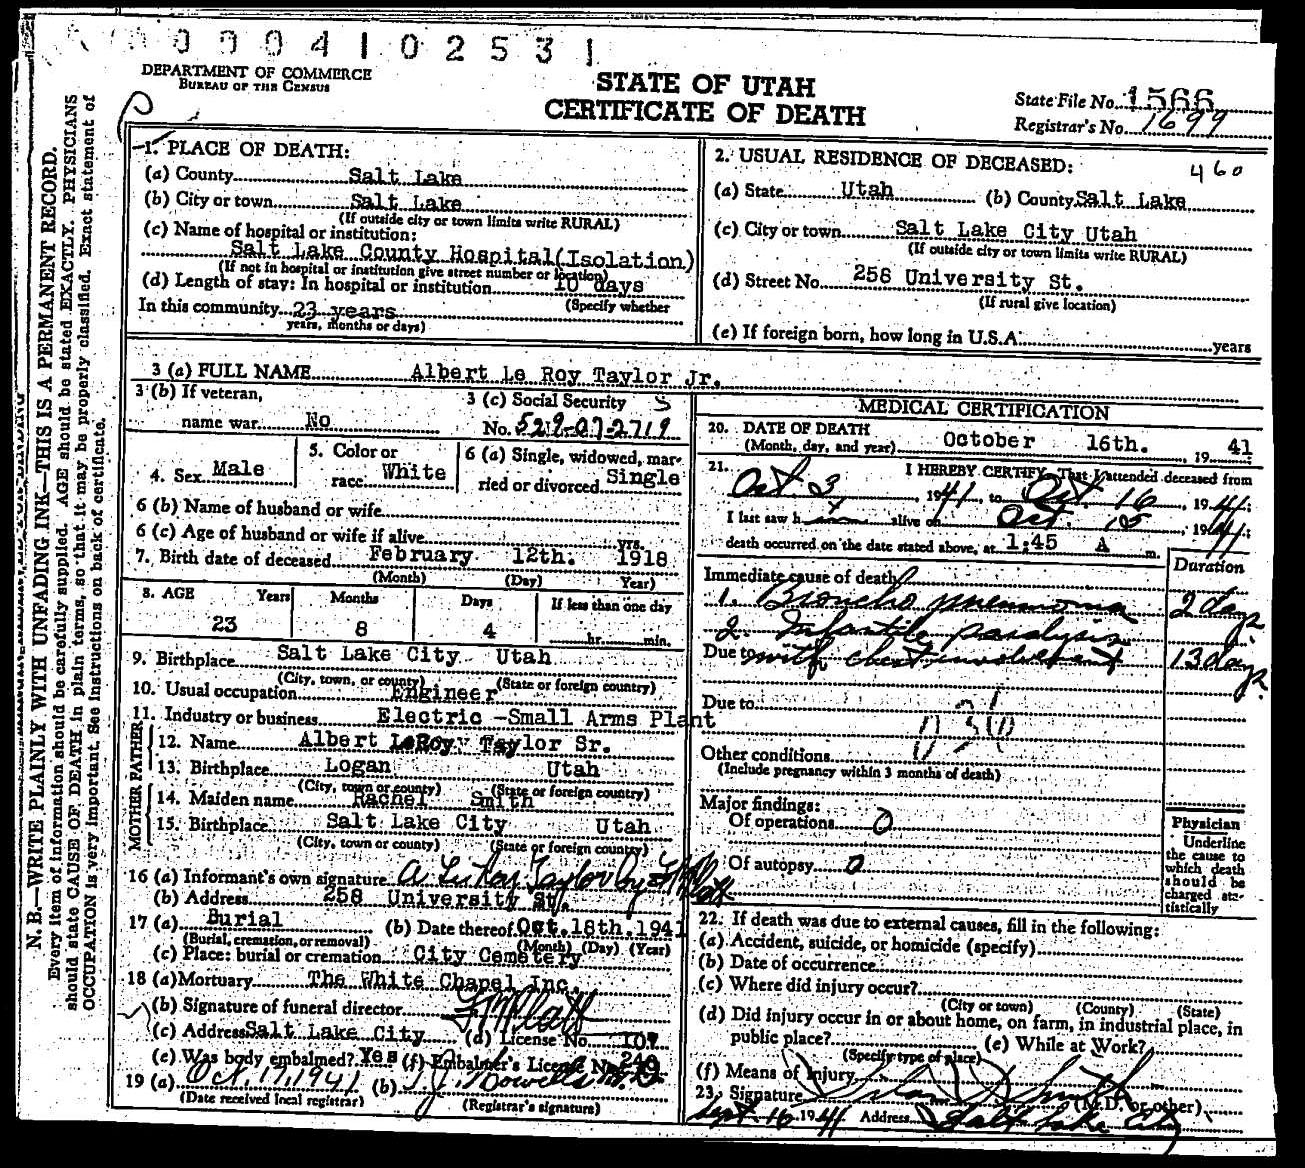 0004102531
DEPARTMENT OF COMMERCE
BUREAU OF THE CENSUS
STATE OF UTAH
CERTIFICATE OF DEATH
State File No. 1566
Registrar's No. 1699
N. B.—WRITE PLAINLY WITH UNFADING INK—THIS IS A PERMANENT RECORD.
Every item of information should be carefully supplied. AGE should be stated EXACTLY. PHYSICIANS
should state CAUSE OF DEATH in plain terms, so that it may be properly classified. Exact statement of
OCCUPATION is very important. See instructions on back of certificate.
1. PLACE OF DEATH:
(a) County Salt Lake
(b) City or town Salt Lake
(If outside city or town limits write RURAL)
(c) Name of hospital or institution:
Salt Lake County Hospital(Isolation)
(If not in hospital or institution give street number or location)
(d) Length of stay: In hospital or institution 10 days
(Specify whether
In this community 23 years
years, months or days)
2. USUAL RESIDENCE OF DECEASED: 460
(a) State Utah (b) County Salt Lake
(c) City or town Salt Lake City Utah
(If outside city or town limits write RURAL)
(d) Street No. 258 University St.
(If rural give location)
(e) If foreign born, how long in U.S.A. years
3 (a) FULL NAME Albert Le Roy Taylor Jr.
3 (b) If veteran,
name war No
3 (c) Social Security
No. 529-07-2719
4. Sex Male
5. Color or
race White
6 (a) Single, widowed, mar-
ried or divorced Single
6 (b) Name of husband or wife
6 (c) Age of husband or wife if alive yrs.
7. Birth date of deceased February 12th. 1918
(Month) (Day) Year)
8. AGE Years Months Days If less than one day
23 8 4 hr. min.
9. Birthplace Salt Lake City Utah
(City, town, or county) (State or foreign country)
10. Usual occupation Engineer
11. Industry or business Electric -Small Arms Plant
FATHER
12. Name Albert LeRoy Taylor Sr.
13. Birthplace Logan Utah
(City, town or county) (State or foreign country)
MOTHER
14. Maiden name Rachel Smith
15. Birthplace Salt Lake City Utah
(City, town or county) (State or foreign country)
16 (a) Informant's own signature A LeRoy Taylor by
(b) Address 258 University St.
17 (a) Burial (b) Date thereof Oct. 18th. 1941
(Burial, cremation, or removal) (Month) (Day) (Year)
(c) Place: burial or cremation City Cemetery
18 (a) Mortuary The White Chapel Inc.
(b) Signature of funeral director
(c) Address Salt Lake City (d) License No. 107
(e) Was body embalmed? Yes (f) Embalmer's License No.
19 (a) Oct. 17, 1941 (b)
(Date received local registrar) (Registrar's signature)
MEDICAL CERTIFICATION
20. DATE OF DEATH
(Month, day, and year) October 16th. 1941
21. I HEREBY CERTIFY, That I attended deceased from
Oct. 3, 1941, to Oct. 16, 1941;
I last saw him alive on Oct. 15, 1941;
death occurred on the date stated above, at 1:45 A m.
Duration
Immediate cause of death
1. Broncho pneumonia 2 days
2. Infantile paralysis
Due to with chest involvement 13 days
Due to
Other conditions
(Include pregnancy within 3 months of death)
Major findings:
Of operations 0
Of autopsy 0
Physician
Underline
the cause to
which death
should be
charged sta-
tistically
22. If death was due to external causes, fill in the following:
(a) Accident, suicide, or homicide (specify)
(b) Date of occurrence
(c) Where did injury occur?
(City or town) (County) (State)
(d) Did injury occur in or about home, on farm, in industrial place, in
public place? (e) While at Work?
(Specify type of place)
(f) Means of Injury
23. Signature Smith (M.D. or other)
Sept. 16 1941 Address Salt Lake City